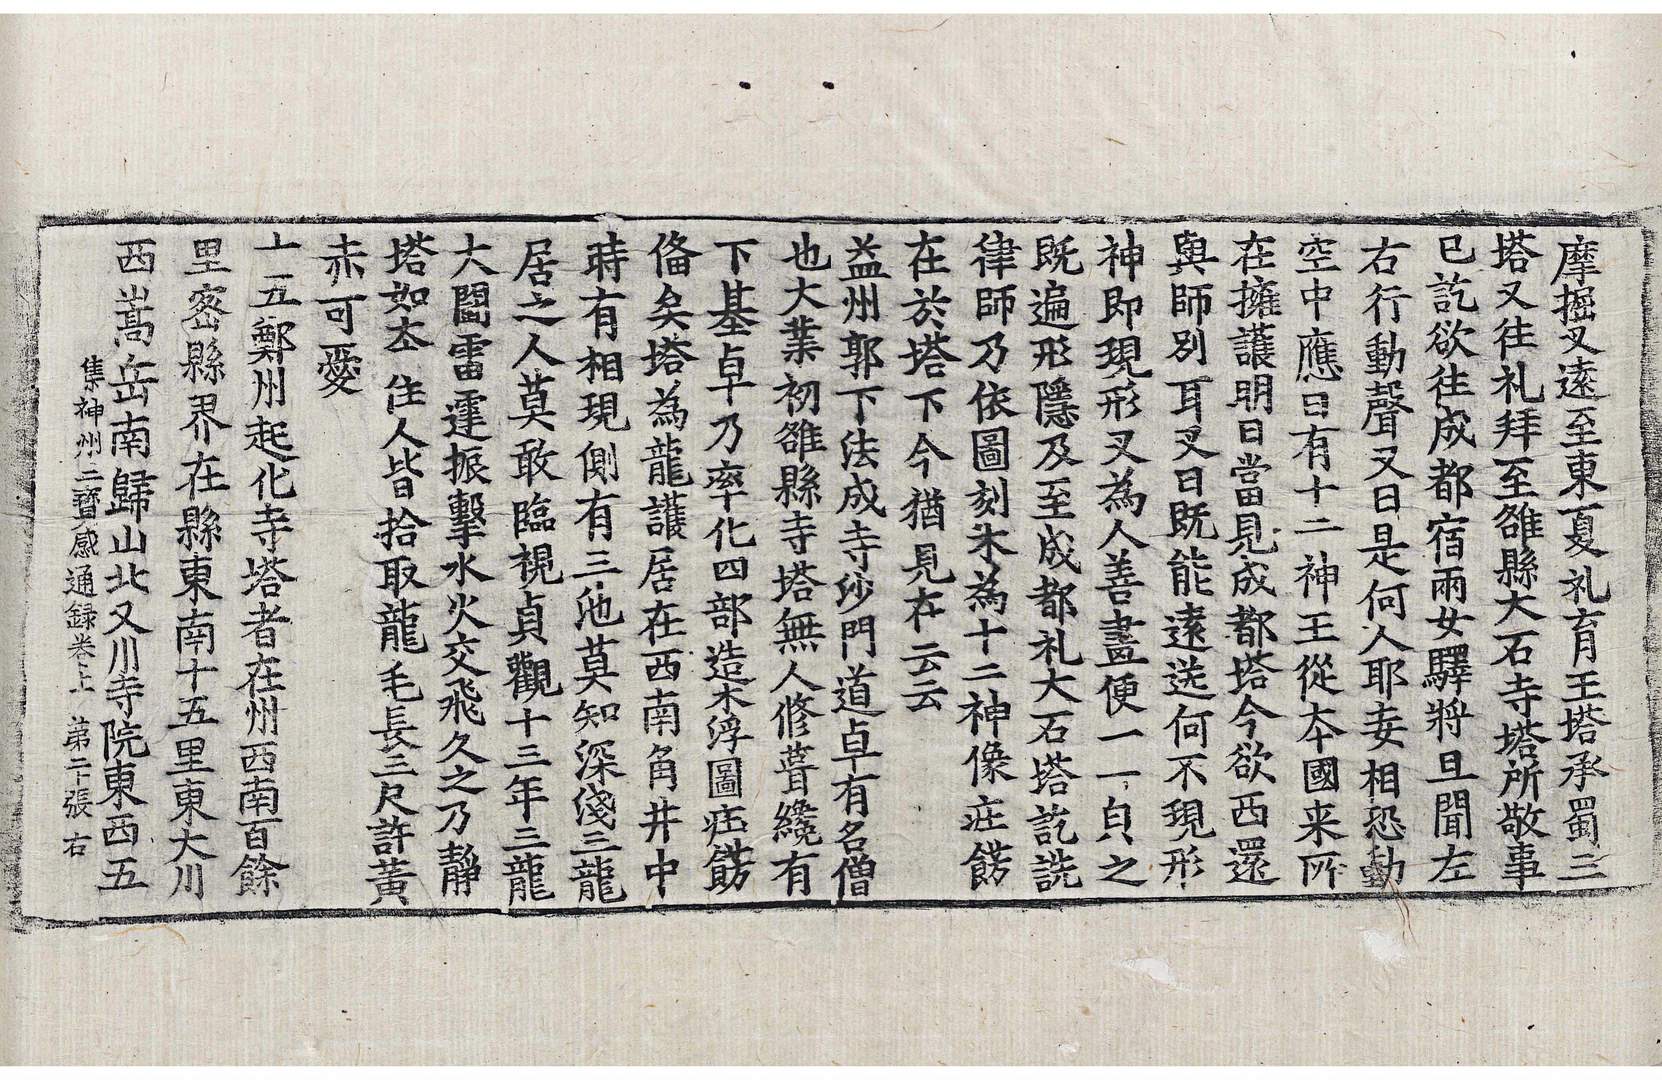 摩掘叉遠至東夏礼育王塔承蜀三
塔又往礼拜至雒縣大石寺塔所敬事
已訖欲往成都宿兩女驛將旦聞左
右行動聲叉曰是何人耶妄相恐動
空中應曰有十二神王從本國来所
在擁護明日當見成都塔今欲西還
與師別耳叉曰既能遠送何不現形
神即現形叉為人善畫便一一㒵之
既遍形隱及至成都礼大石塔訖詵
律師乃依圖刻木為十二神像庄餝
在於塔下今猶見在云云
益州郭下法成寺沙門道卓有名僧
也大業初雒縣寺塔無人修葺纔有
下基卓乃率化四部造木浮圖庄餝
俻矣塔為龍護居在西南角井中
時有相現側有三池莫知深淺三龍
居之人莫敢臨視貞觀十三年三龍
大鬪雷霆振擊水火交飛久之乃靜
塔如本住人皆拾取龍毛長三尺許黃
赤可愛
十五鄭州起化寺塔者在州西南百餘
里密縣界在縣東南十五里東大川
西嵩岳南歸山北又川寺院東西五
集神州三寶感通録卷上 苐二十張 右